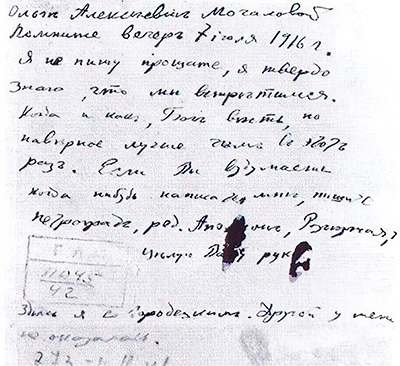 Ольгѣ Алексѣевнѣ Мочаловой
Помните вечеръ 7 iюля 1916 г.
Я не пишу прощайте, я твердо
знаю, что мы встрѣтимся.
Когда и какъ, Богъ вѣсть, но
навѣрное лучше чѣмъ въ этотъ
разъ. Если Вы вздумаете
когда нибудь написать мнѣ, пишите
Петроградъ, ред. Аполлонъ, Разъѣзжая,
цѣлую руку
11045
42
Здѣсь я съ Городецкимъ. Другой у меня
не оказалось.